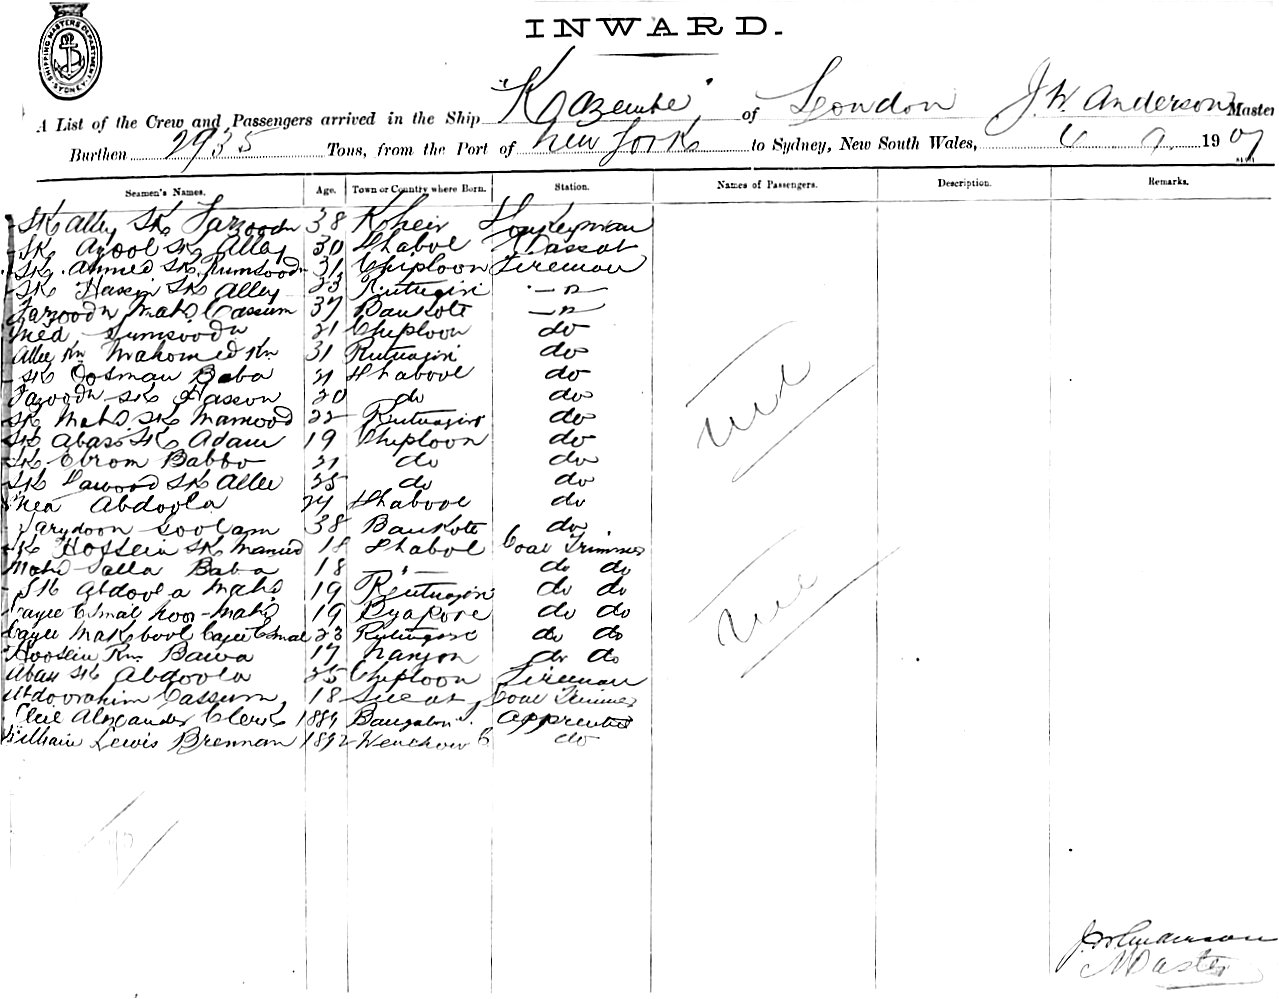 INWARD.
SHIPPING MASTERS DEPARTMENT SYDNEY
A List of the Crew and Passengers arrived in the Ship "Kazembe" of London J. W. Anderson Master
Burthen 2935 Tons, from the Port of New York to Sydney, New South Wales, 4 9 1907
Seamen's Names. Age. Town or Country where Born. Station. Names of Passengers. Description. Remarks.
SK Alley SK Fazoodn 38 Kheir Donkeyman
SK Apool SK Alley 30 Dhabol Cassab
SK Ahmed SK Kumsoodn 31 Chiploon Fireman
SK Hassin SK Alley 23 Rutnagiri — " —
Fazoodn Mahd Cassum 37 Bankote — " —
Med Sumsoodn 21 Chiploon do
Allee Kn Mahomed Kn 31 Rutnagiri do
SK Oosman Baba 21 Dhabool do
Fazoodn SK Hasson 20 do do
SK Mahd SK Mamood 22 Rutnagiri do
SK Abas SK Adam 19 Chiploon do
SK Ebrom Babbo 21 do do
SK Dawood SK Allee 25 do do
Abdoola 24 Dhabool do
38 Bankote do
SK Hossein SK Mamed 18 Dhabol Coal Trimmer
Mahd Salla Baba 18 — " — do do
SK Abdoola Mahd 19 Rutnagiri do do
Esmal noor Mahd 19 do do
Cayee Makbool Cayee Esmal 23 Rutnagiri do do
Hoosein Kn Bawa 17 do do
Abas SK Abdoola 25 Chiploon Fireman
Abdoorahim Cassum 18 Coal Trimmer
Alexander Clerk 1889 Apprentice
William Lewis Brennan 1892 Wenchow C do
nil
nil
J. W. Anderson
Master